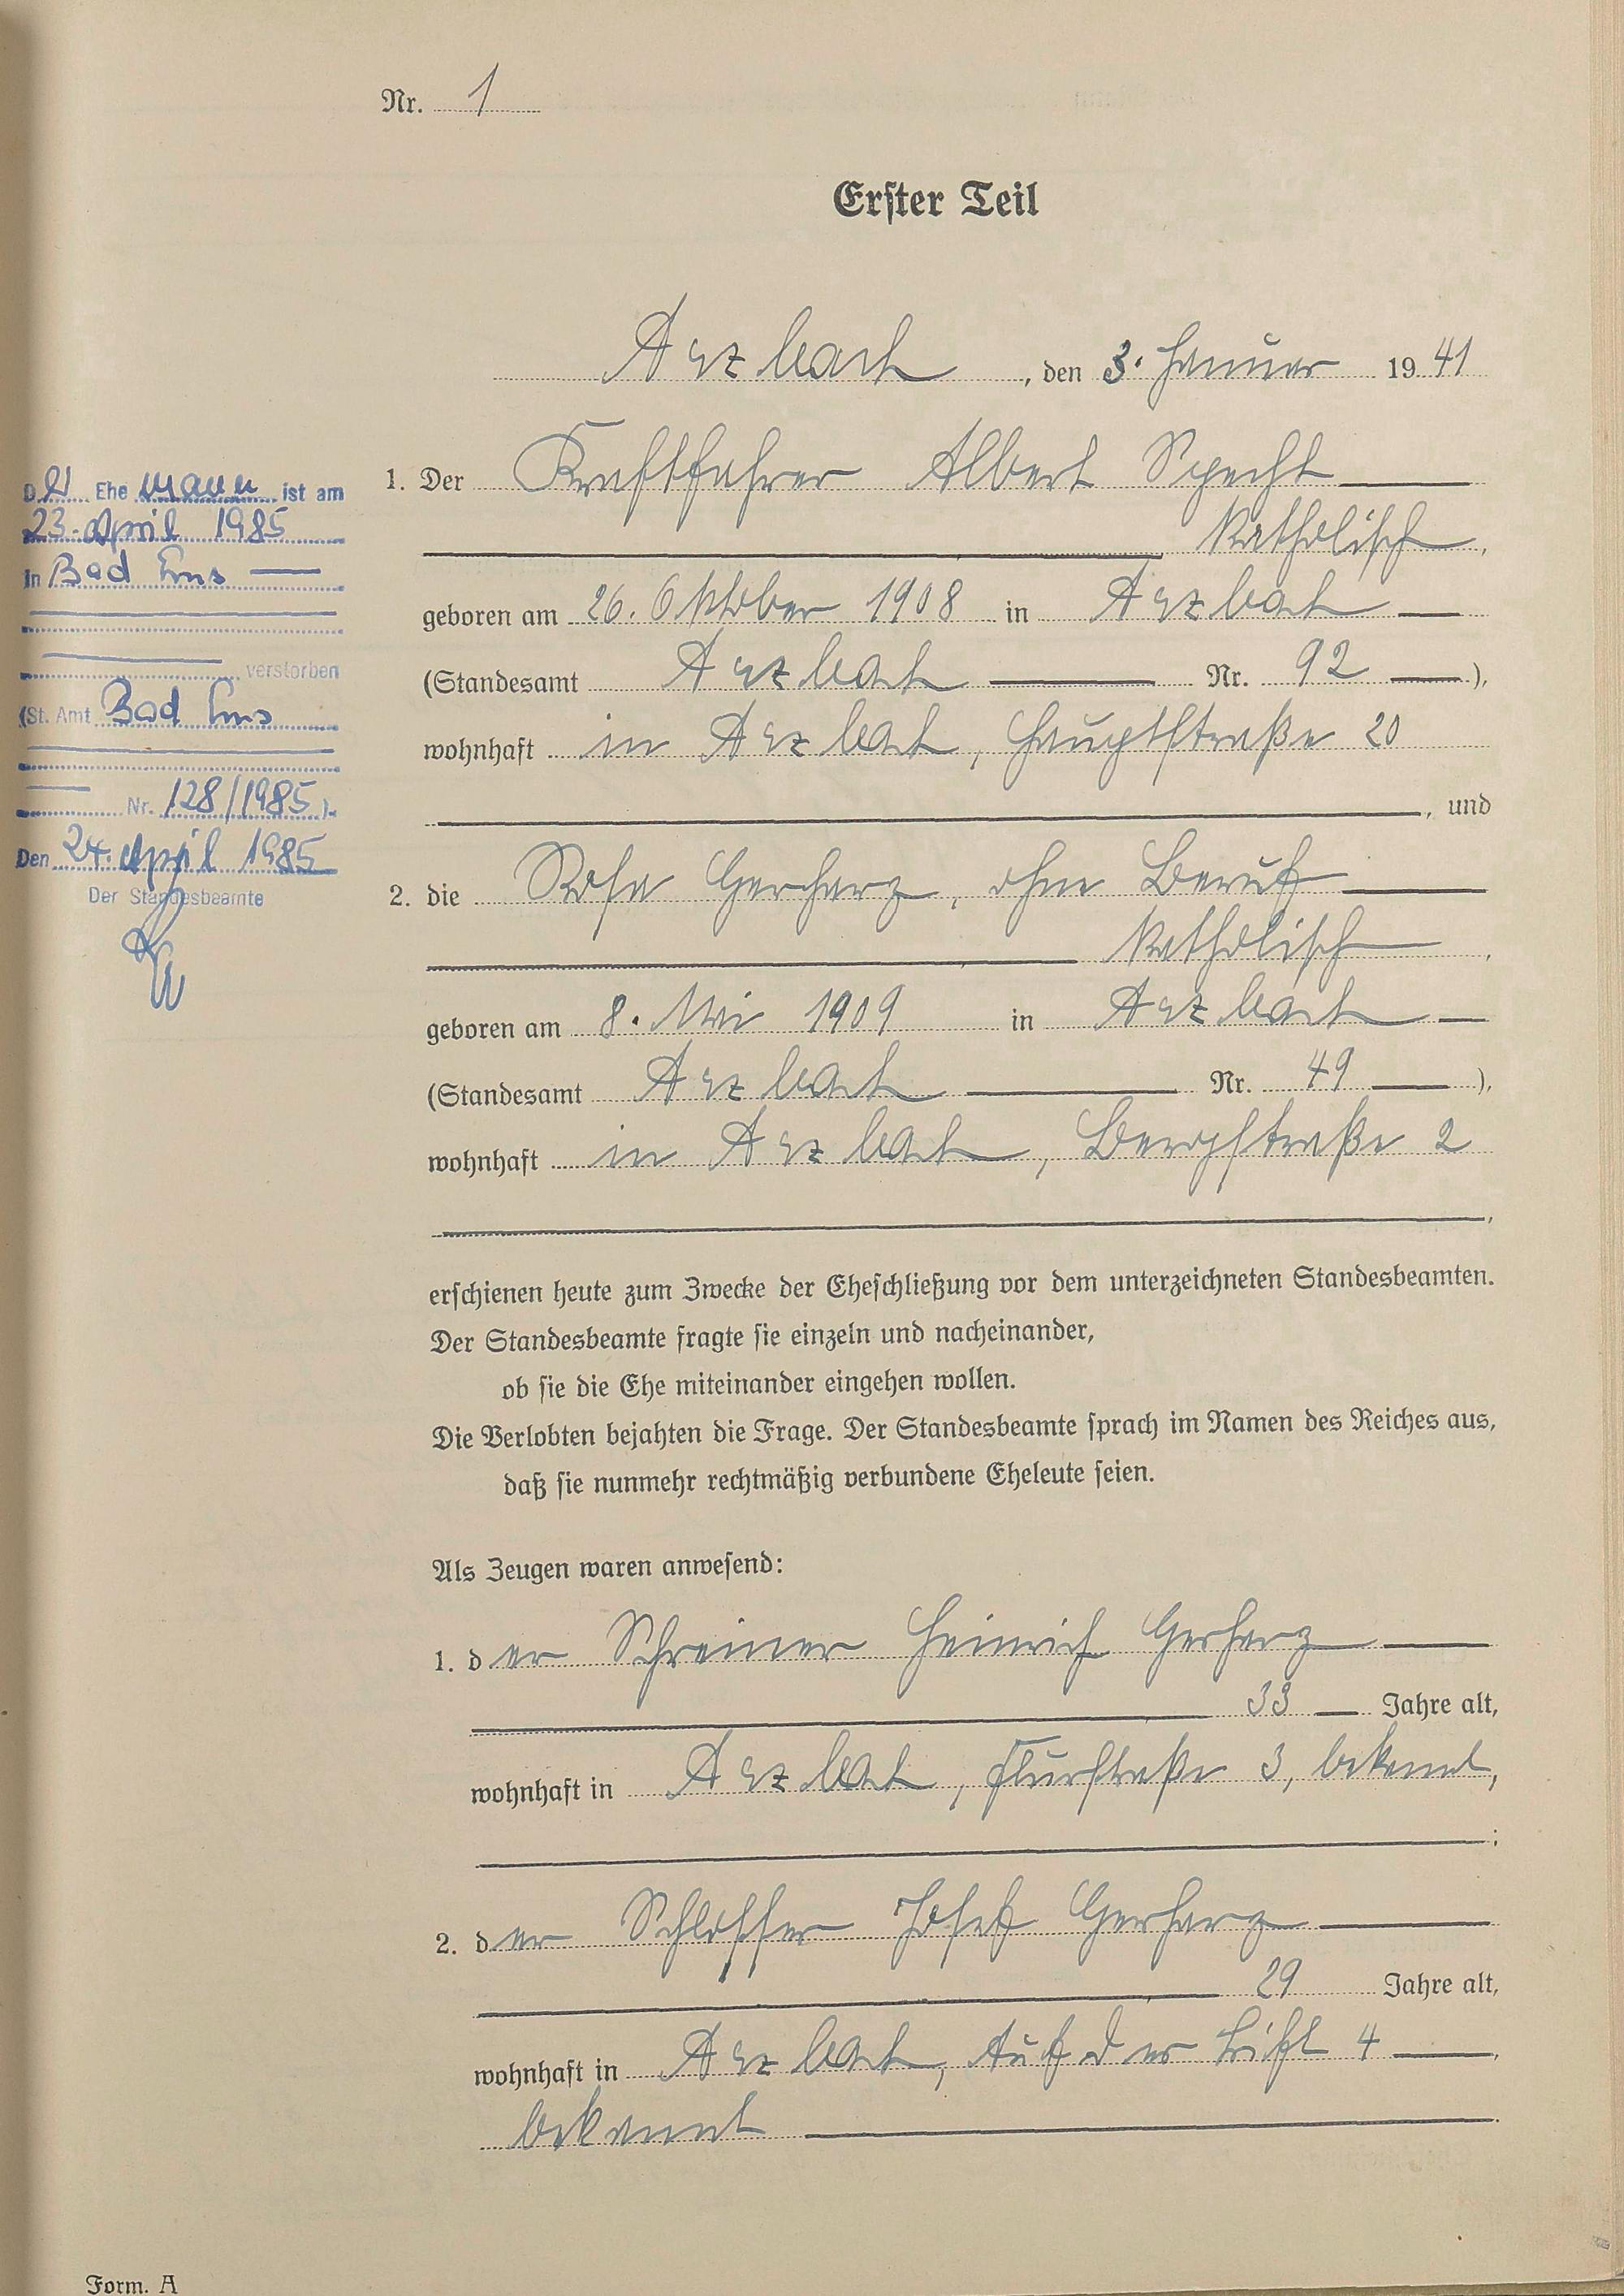 Nr. 1
Erster Teil
Arzbach, den 3. Januar 1941
1. Der Kraftfahrer Albert Specht
katholisch,
geboren am 26. Oktober 1908 in Arzbach
(Standesamt Arzbach Nr. 92),
wohnhaft in Arzbach, Hauptstraße 20
, und
2. die Rosa Gerharz, ohne Beruf
katholisch,
geboren am 8. Mai 1909 in Arzbach
(Standesamt Arzbach Nr. 49),
wohnhaft in Arzbach, Bergstraße 2
,
erschienen heute zum Zwecke der Eheschließung vor dem unterzeichneten Standesbeamten.
Der Standesbeamte fragte sie einzeln und nacheinander,
ob sie die Ehe miteinander eingehen wollen.
Die Verlobten bejahten die Frage. Der Standesbeamte sprach im Namen des Reiches aus,
daß sie nunmehr rechtmäßig verbundene Eheleute seien.
Als Zeugen waren anwesend:
1. der Schreiner Heinrich Gerharz
33 Jahre alt,
wohnhaft in Arzbach, Flurstraße 3, bekannt,
;
2. der Schlosser Josef Gerharz
29 Jahre alt,
wohnhaft in Arzbach, Auf der Trift 4,
bekannt.
Der Ehemann ist am
23. April 1985
in Bad Ems
verstorben
(St. Amt Bad Ems
Nr. 128/1985).
Den 24. April 1985
Der Standesbeamte
Form. A